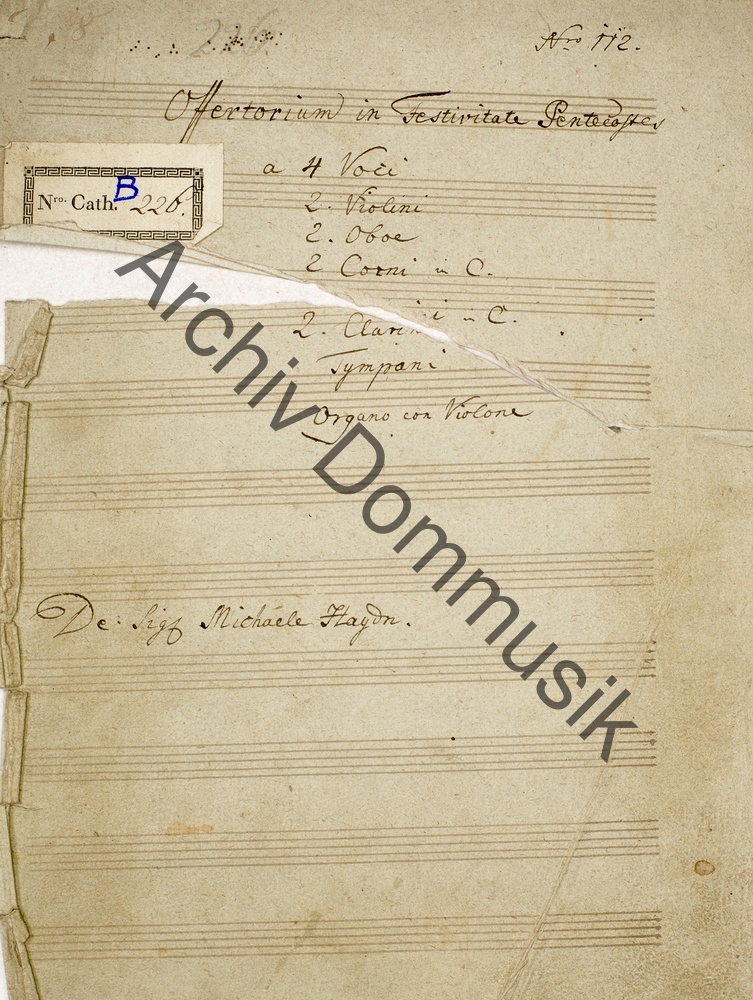 Nro 112.
Offertorium in Festivitate Pentecostes
a 4 Voci
Nro. Cath. B 226.
2. Violini
2. Oboe
2 Corni in C.
2. Clarini in C.
Tympani
Organo con Violone
De: Sigr Michaele Haydn.
Archiv Dommusik